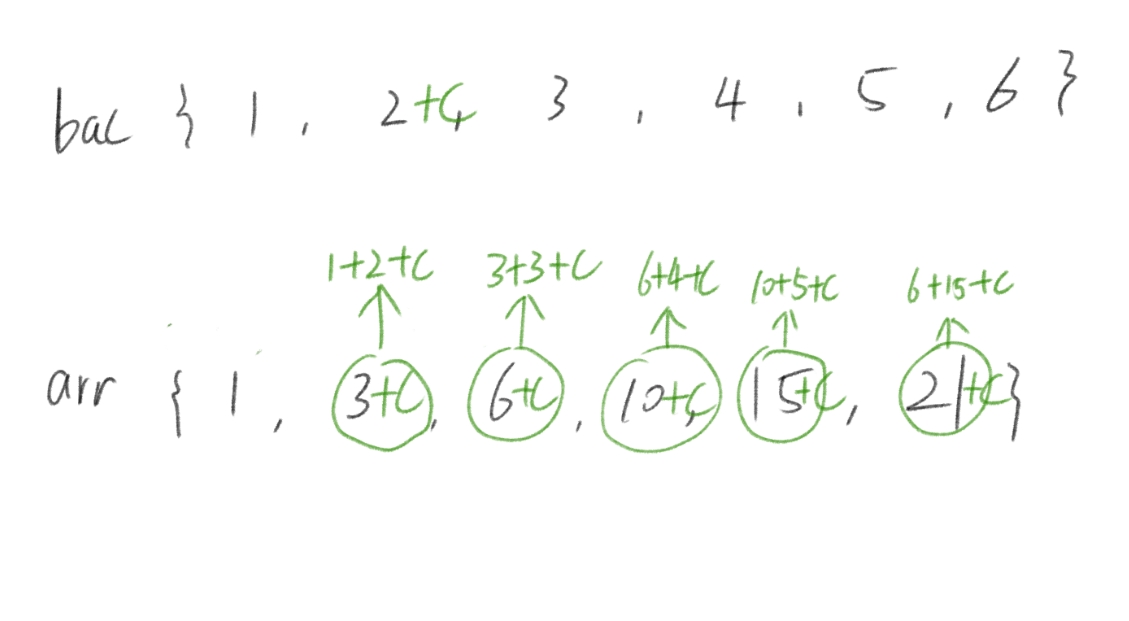 bac { 1 , 2+C, 3 , 4 , 5 , 6 }
1+2+C 3+3+C 6+4+C 10+5+C 6+15+C
arr { 1 , 3+C , 6+C , 10+C, 15+C , 21+C }